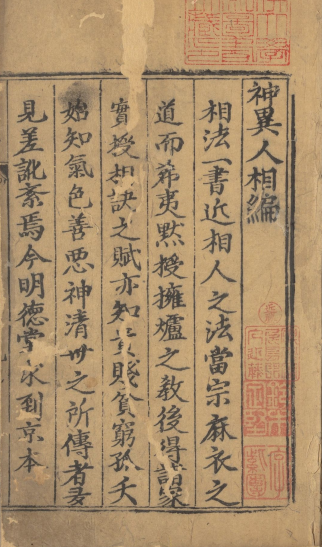 神異人相編
相法一書近相人之法當宗麻衣之
道而希夷黙授擁爐之教後得諸家
實授相訣之賦亦知貴賤貧窮孤夭
始知氣色善悪神清世之所傳者多
見差訛紊焉今明德堂求到京本